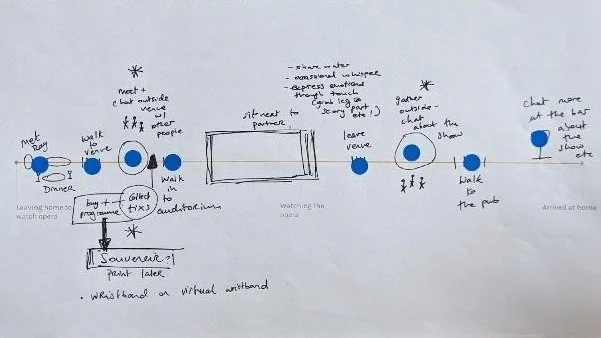 met
Ray
Dinner
walk
to
venue
meet +
chat outside
venue
w/
other
people
buy +
programme
collect
tixs
walk
in
to
auditorium
Souvenir?!
print later
• wristband or virtual wristband
sit next to
partner
- share water
- occasional whisper
- express emotions
through touch
(grab leg @
scary part
etc!)
leave
venue
gather
outside -
chat
about the
show
walk
to
the pub
chat more
at the bar
about
the
show
etc
Leaving home to
watch opera
Watching the
opera
Arrived at home